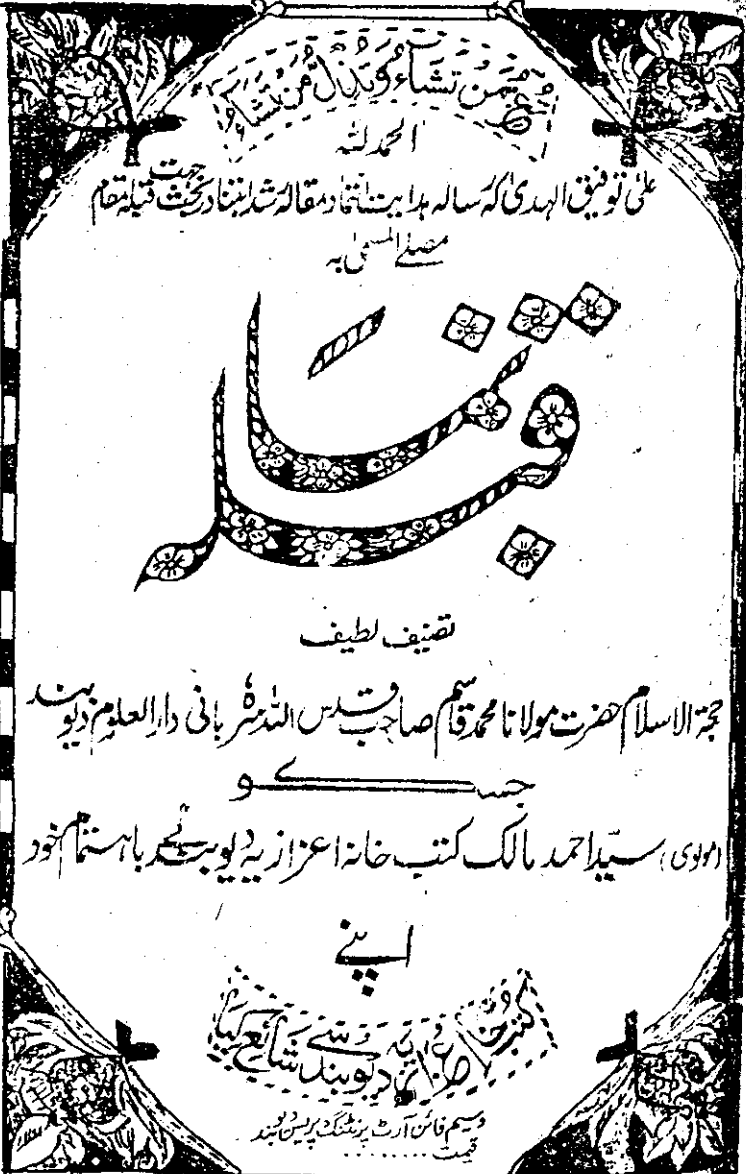 تعز من تشاء و تذل من تشاء
الحمد للہ
علی توفیق الہدی کہ رسالہ ہدایت انتما و مقالہ رشد ابتنا در بحث جہت قبلہ مقام
مصلے المسمیٰ بہ
قبلہ نما
تصنیف لطیف
حجۃ الاسلام حضرت مولانا محمد قاسم صاحب قدس اللہ سرہٗ بانی دارالعلوم دیوبند
جسکو
(مولوی) سید احمد مالک کتب خانہ اعزازیہ دیوبند نے باہتمام خود
اپنے
کتب خانہ اعزازیہ دیوبند سے شائع کیا
وسیم فائن آرٹ پرنٹنگ پریس دیوبند
قیمت ........